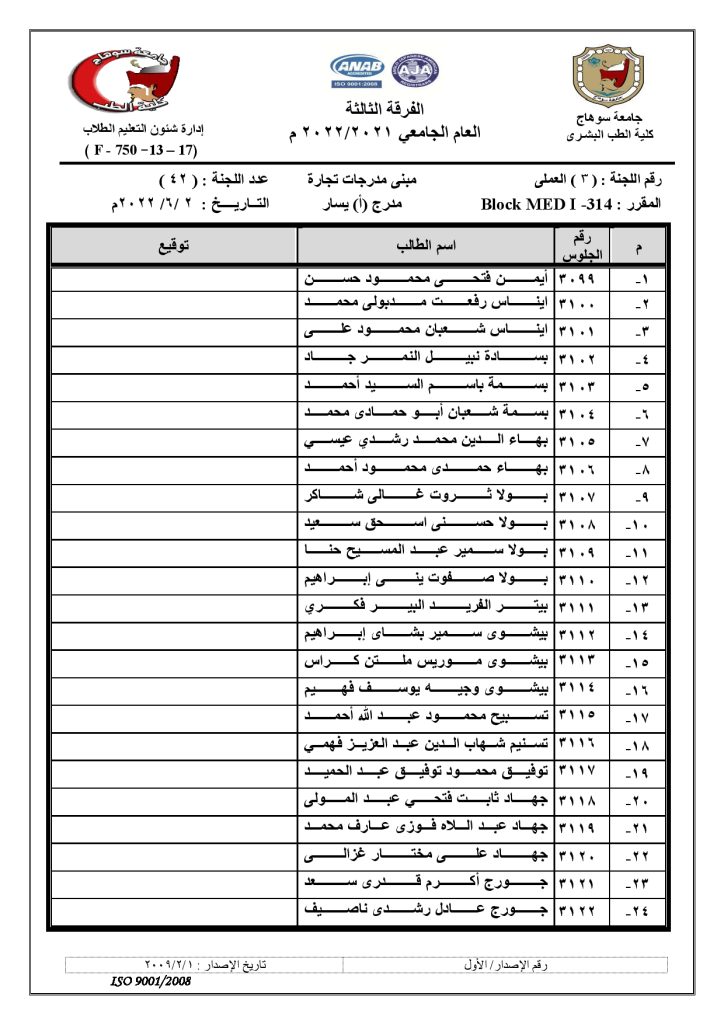 جامعة سوهاج
كلية الطب البشرى
ANAB
ACCREDITED
ISO 9001:2008
AJA
جامعة سوهاج
كلية الطب
إدارة شئون التعليم الطلاب
( F - 750 -13 – 17)
الفرقة الثالثة
العام الجامعي ٢٠٢٢/٢٠٢١ م
رقم اللجنة : ( ٣ ) العملى
مبنى مدرجات تجارة
عدد اللجنة : ( ٤٢ )
المقرر : Block MED I -314
مدرج (أ) يسار
التـاريـــخ : ٢ /٦/ ٢٠٢٢م
م رقم الجلوس اسم الطالب توقيع
١- ٣٠٩٩ أيمن فتحى محمود حسن
٢- ٣١٠٠ ايناس رفعت مدبولى محمد
٣- ٣١٠١ ايناس شعبان محمود على
٤- ٣١٠٢ بسادة نبيل النمر جاد
٥- ٣١٠٣ بسمة باسم السيد أحمد
٦- ٣١٠٤ بسمة شعبان أبو حمادى محمد
٧- ٣١٠٥ بهاء الدين محمد رشدي عيسي
٨- ٣١٠٦ بهاء حمدى محمود أحمد
٩- ٣١٠٧ بولا ثروت غالى شاكر
١٠- ٣١٠٨ بولا حسنى اسحق سعيد
١١- ٣١٠٩ بولا سمير عبد المسيح حنا
١٢- ٣١١٠ بولا صفوت ينى إبراهيم
١٣- ٣١١١ بيتر الفريد البير فكري
١٤- ٣١١٢ بيشوى سمير بشاى إبراهيم
١٥- ٣١١٣ بيشوى موريس ملتن كراس
١٦- ٣١١٤ بيشوى وجيه يوسف فهيم
١٧- ٣١١٥ تسبيح محمود عبد الله أحمد
١٨- ٣١١٦ تسنيم شهاب الدين عبد العزيز فهمي
١٩- ٣١١٧ توفيق محمود توفيق عبد الحميد
٢٠- ٣١١٨ جهاد ثابت فتحي عبد المولى
٢١- ٣١١٩ جهاد عبد اللاه فوزى عارف محمد
٢٢- ٣١٢٠ جهاد على مختار غزالى
٢٣- ٣١٢١ جورج أكرم قدرى سعد
٢٤- ٣١٢٢ جورج عادل رشدى ناصيف
رقم الإصدار/ الأول
تاريخ الإصدار : ٢٠٠٩/٢/١
ISO 9001/2008